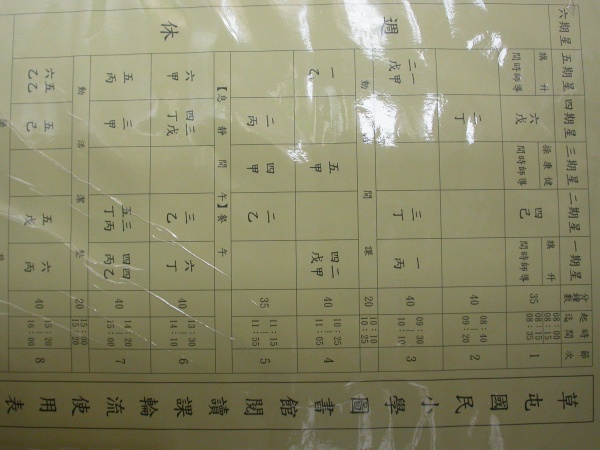 草屯國民小學圖書館閱讀課輪流使用表
節次 1 2 3 4 5 6 7 8
起迄時間 08:00 08:15 08:15 08:35 08:40 09:20 09:30 10:10 10:10 10:25 10:25 11:05 11:15 11:55 13:30 14:10 14:20 15:00 15:00 15:20 15:20 16:00
分鐘數 35 40 40 20 40 35 40 40 20 40
星期一 升旗 導師時間 一丙 二甲 四戊 六丁 四乙 四丙 六丙
星期二 四己 三丁 二乙 三乙 三丙 五丁 五戊
星期三 健康操 導師時間 五甲 四甲
星期四 六戊 二丁 二丙 三戊 四丁 三甲 五己
星期五 升旗 導師時間 一甲 二戊 一乙 六甲 五丙 五乙 六乙
星期六 週休
課間活動
午餐【午間靜息】